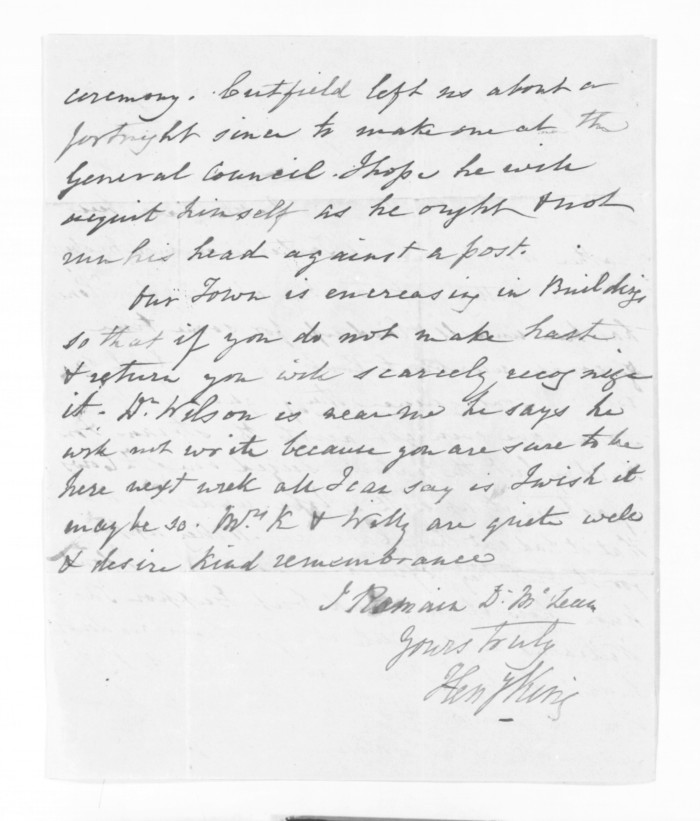 ceremony. Cutfield left us about a
fortnight since to make one at the
General Council. I hope he will
acquit himself as he ought & not
run his head against a post.
Our Town is encreasing in Buildings
so that if you do not make haste
& return you will scarcely recognize
it. Dr. Wilson is near me he says he
will not write because you are sure to be
here next week all I can say is I wish it
may be so. Mrs K & Willy are quite well
& desire kind remembrance
I Remain Dr. McLean
Yours truly
Heny King